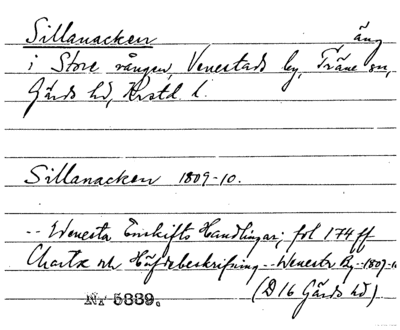 Sillanacken äng
i Store vången, Venestads by, Träne sn,
Gärds hd, Krstd. l.
Sillanacken 1809-10.
-- Wenesta Enskifts Handlingar; fol 174 ff
Charta och Häfdebeskrifning -- Wenesta By -- 1809-10
(D 16 Gärds hd)
Nr 5339.